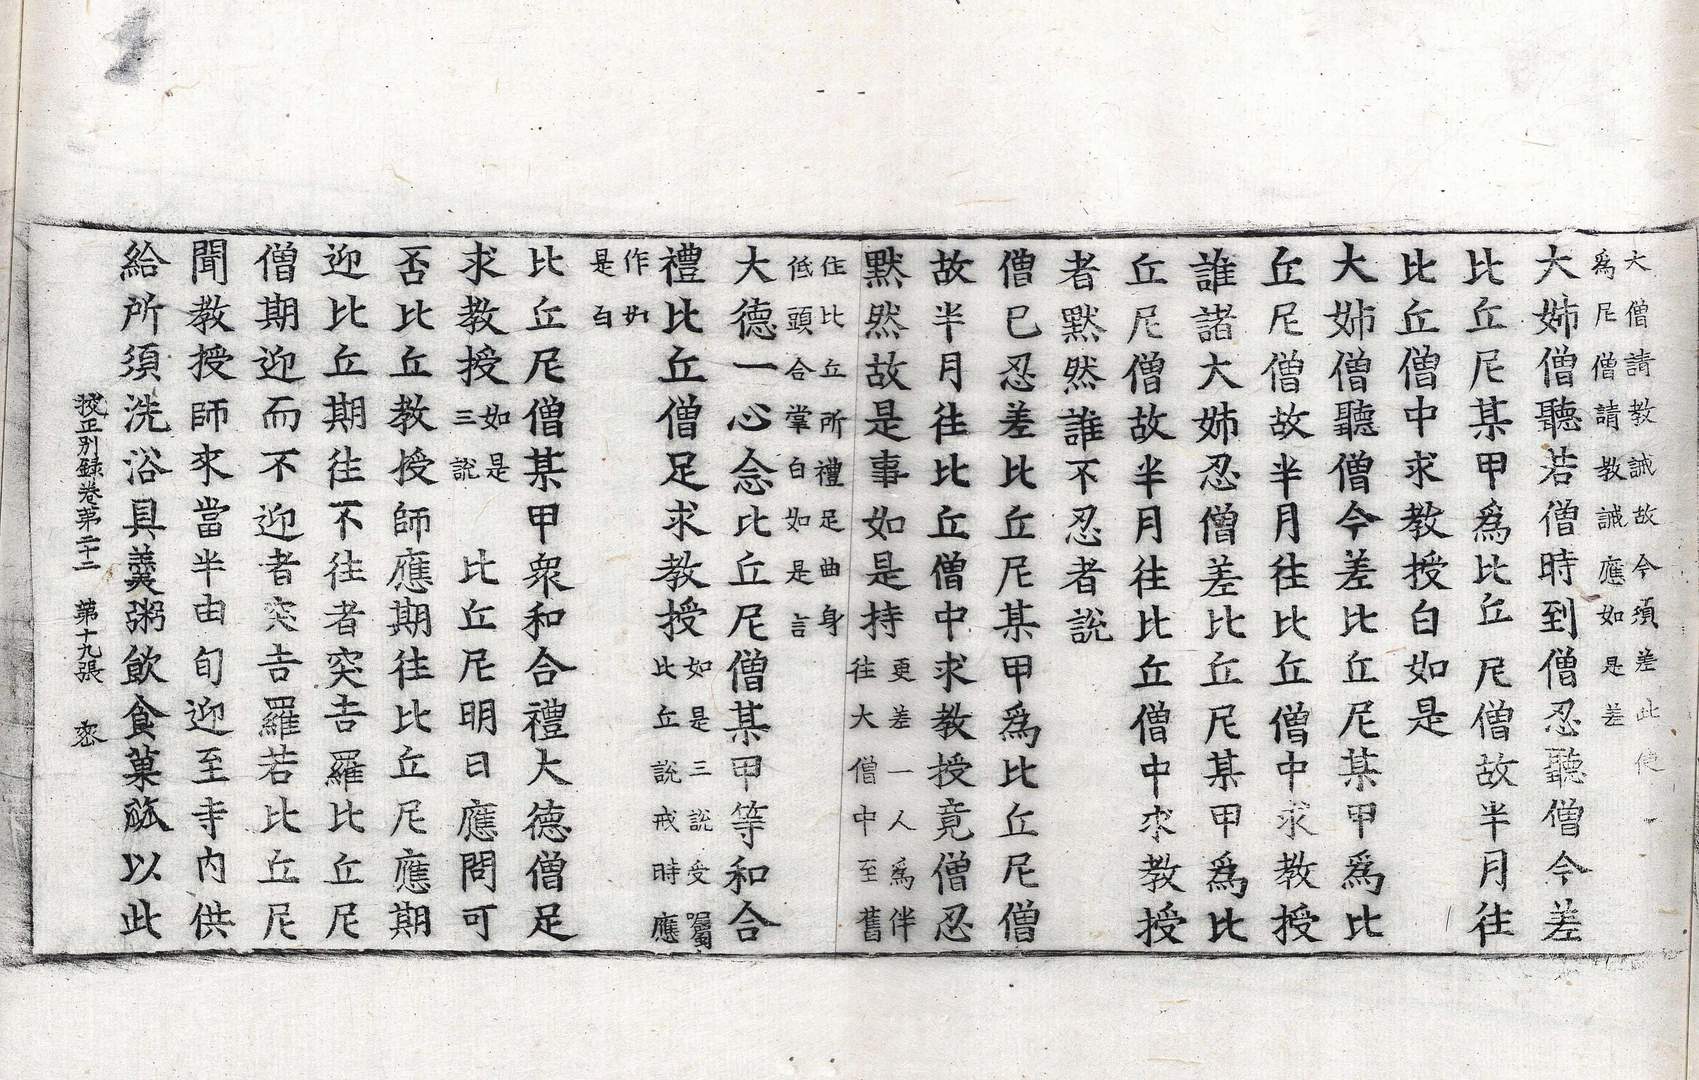 大僧請教誡故今須差此使
爲尼僧請教誡應如是差
大姉僧聽若僧時到僧忍聽僧今差
比丘尼某甲爲比丘尼僧故半月往
比丘僧中求教授白如是
大姉僧聽僧今差比丘尼某甲爲比
丘尼僧故半月往比丘僧中求教授
誰諸大姉忍僧差比丘尼某甲爲比
丘尼僧故半月往比丘僧中求教授
者默然誰不忍者說
僧已忍差比丘尼某甲爲比丘尼僧
故半月往比丘僧中求教授竟僧忍
默然故是事如是持更差一人爲伴往大僧中至舊
住比丘所禮足曲身
低頭合掌白如是言
大德一心念比丘尼僧某甲等和合
禮比丘僧足求教授如是三說受囑比丘說戒時應
作如
是白
比丘尼僧某甲衆和合禮大德僧足
求教授如是三說 比丘尼明日應問可
否比丘教授師應期往比丘尼應期
迎比丘期往不往者突吉羅比丘尼
僧期迎而不迎者突吉羅若比丘尼
聞教授師來當半由旬迎至寺內供
給所須洗浴具羹粥飮食菓蓏以此
挍正別錄卷第二十二 第十九張 密